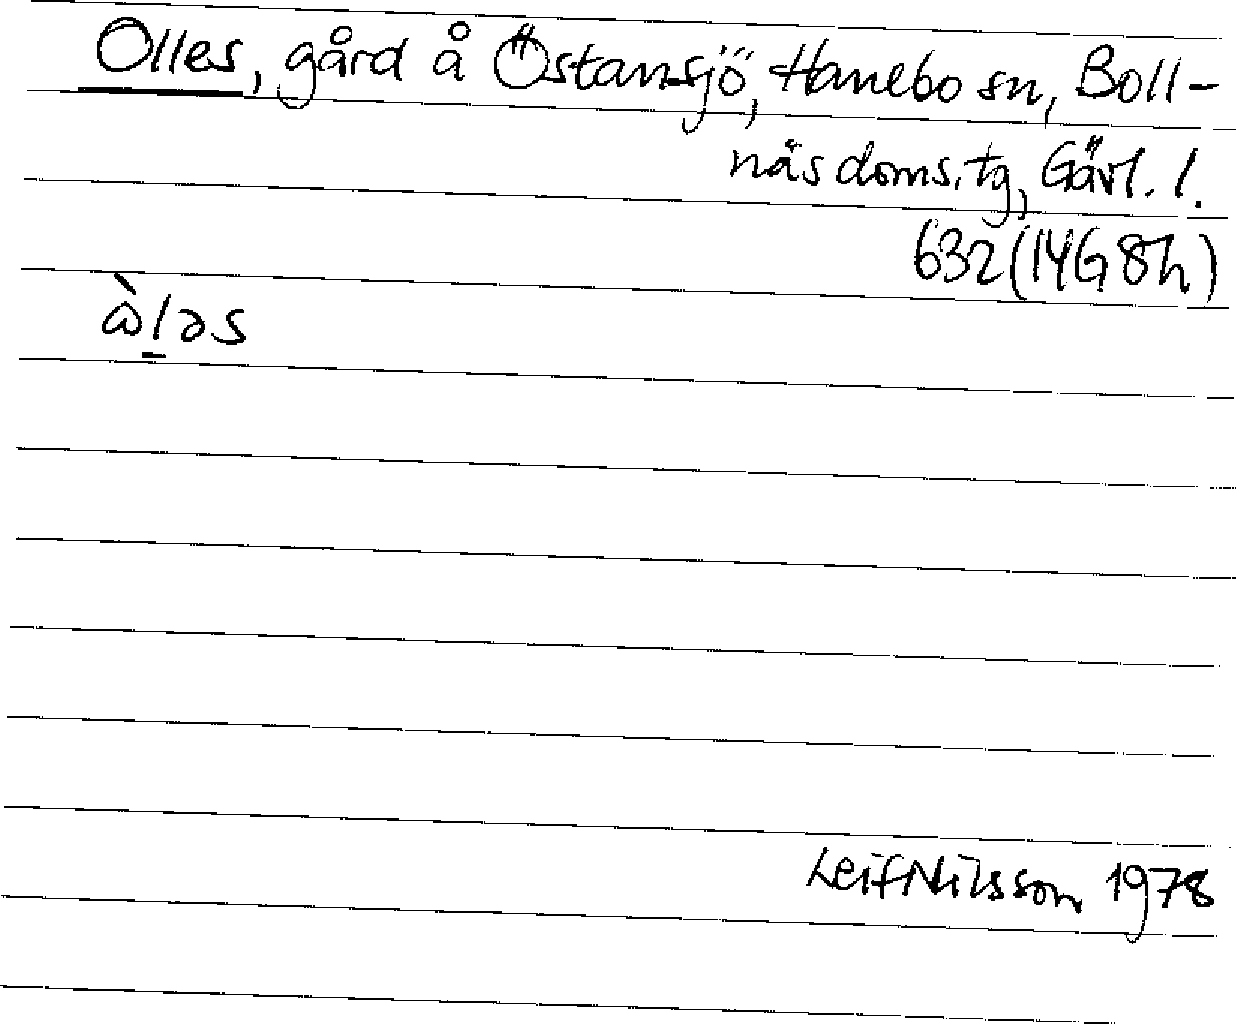 Olles, gård å Östansjö, Hanebo sn, Boll-
näs doms. tg, Gävl. l.
632 (14G 8h)
ὼl̲əs
Leif Nilsson 1978